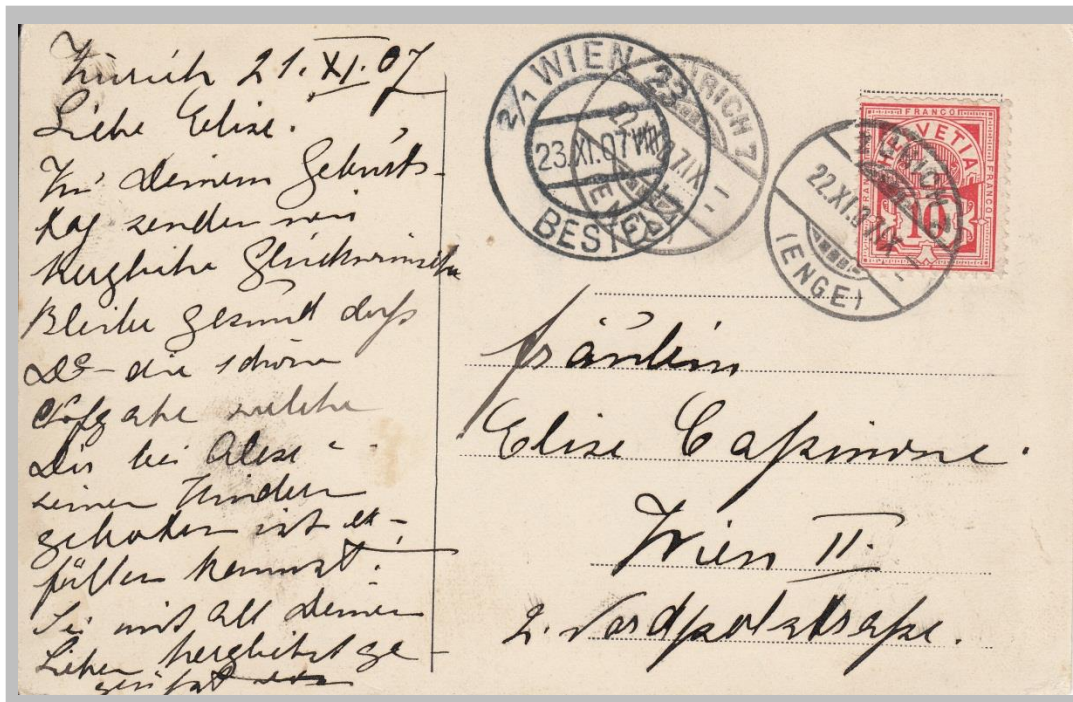 Zürich 21. XI. 07
Liebe Elise.
Zu Deinem Geburts-
tag senden wir
herzliche Glückwünsche
Bleibe gesund dass
Du die schöne
Aufgabe welche
Dir bei
seinen Kindern
geboten ist er-
füllen kannst.
Sei mit all Deinen
Lieben herzlichst ge-
grüsst
2/1 WIEN
23.XI.07
BESTELLT
ZÜRICH 7
ZÜRICH
22.XI.07.IX
(ENGE)
FRANCO
HELVETIA
10
Fräulein
Elise
Wien II.
2. Nordpolstraße.